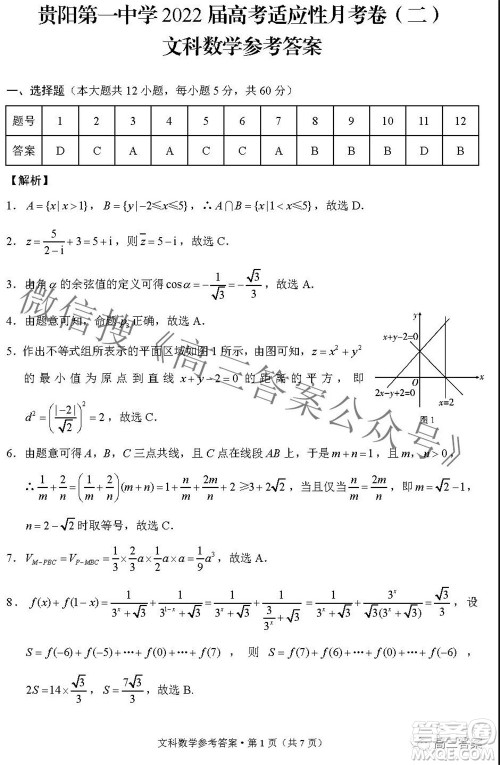 贵阳第一中学 2022 届高考适应性月考卷（二）
文科数学参考答案
一、选择题（本大题共 12 小题，每小题 5 分，共 60 分）
题号 1 2 3 4 5 6 7 8 9 10 11 12
答案 D C A A C C A B B B D B
【解析】
1．A={x|x>1}，B={y|-2≤x≤5}，∴A∩B={x|1<x≤5}，故选 D．
2．z=5/(2-i)+3=5+i，则z̄=5-i，故选 C．
3．由角α的余弦值的定义可得cosα=-1/√3=-√3/3，故选 A．
4．由题意可知，命题 正确，故选 A．
5．作出不等式组所表示的平面区域如图 1 所示，由图可知，z=x²+y²
的最小值为原点到直线 x+y-2=0 的距离的平方，即
d²=(|-2|/√2)²=2，故选 C．
y
x+y-2=0
O
x
2x-y+2=0
x=2
图 1
6．由题意可得 A，B，C 三点共线，且 C 点在线段 AB 上，于是 m+n=1，且 m，n>0，
∴1/m+2/n=(1/m+2/n)(m+n)=1+n/m+2m/n+2≥3+2√2，当且仅当n/m=2m/n，即m=√2-1，
n=2-√2 时取等号，故选 C．
7．V_{M-PBC}=V_{P-MBC}=1/3×2/3a×1/2a×a=1/9a³，故选 A．
8．f(x)+f(1-x)=1/(3^x+√3)+1/(3^{1-x}+√3)=1/(3^x+√3)+1/(3/3^x+√3)=1/(3^x+√3)+3^x/(√3(3^x+√3))=√3/3，设
S=f(-6)+f(-5)+⋯+f(0)+⋯+f(7)，则 S=f(7)+⋯+f(0)+⋯+f(-6)，
2S=14×√3/3，S=7√3/3，故选 B.
微信搜《高三答案公众号》
文科数学参考答案·第 1 页（共 7 页）
高三答案